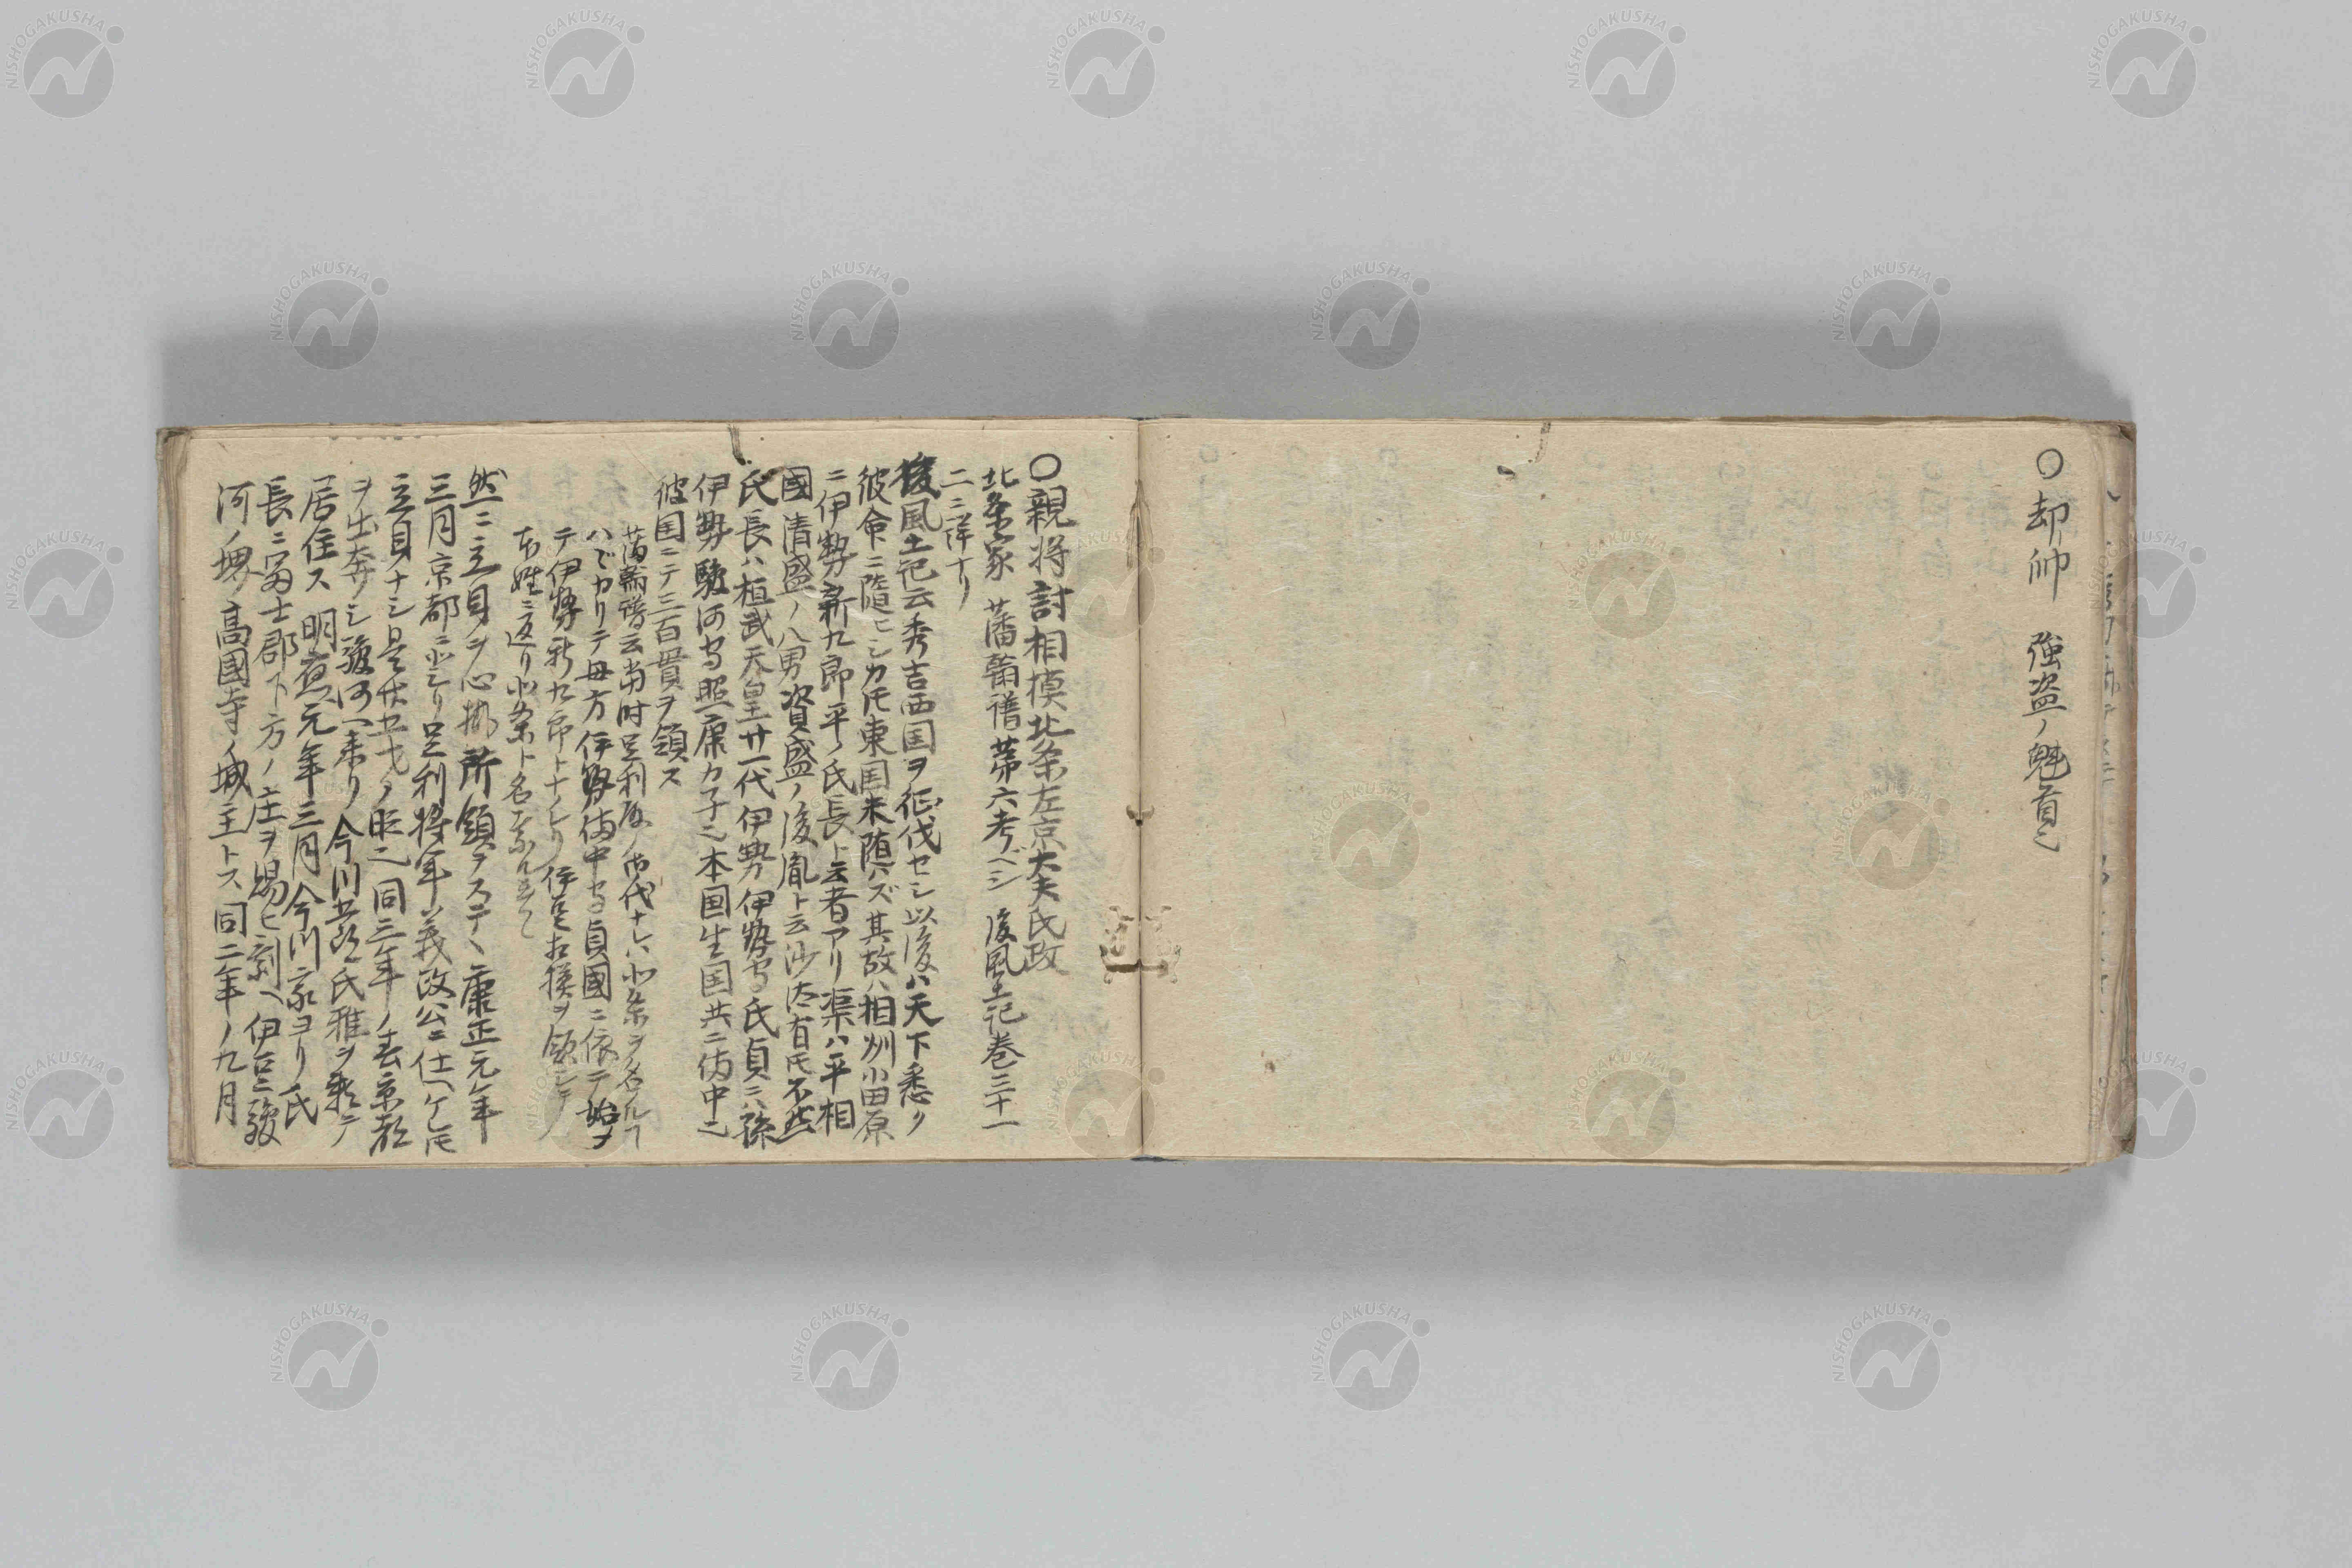 〇却帥　強盗ノ魁首也
〇親将討相摸北条左京大夫氏政
北条家　藩翰譜第六考ベシ　後風土記巻三十一
二ニ詳ナリ
後風土記云秀吉西国ヲ征伐セシ以後ハ天下悉ク
彼命ニ随ヒシカ𪜈東国未随ハズ其故ハ相州小田原
ニ伊勢新九郎平ノ氏長ト云者アリ渠ハ平相
國清盛ノ八男資盛ノ後胤ト云沙汰有𪜈不然
氏長ハ桓武天皇廿一代伊勢伊勢守氏貞ニハ孫
伊勢駿河守照康カ子也本国生国共ニ備中也
彼国ニテ三百貫ヲ領ス
藩翰譜云当時足利殿ノ御代ナレハ北条ヲ名ルヿ
ハヾカリテ母方伊勢備中守貞國ニ依テ始メ
テ伊勢新九郎トナレリ伊豆相摸ヲ領シテ
本姓ニ返リ北条ト名乗
然ニ立身ヲ心掛所領ヲステヽ康正元年
三月京都ニ上リ足利将軍義政公ニ仕ヘケレ𪜈
立身ナシ
ヲ出奔シ駿河ヘ来リ今川五郎氏雅ヲ頼テ
居住ス明應元年三月今川家ヨリ氏
長ニ富士郡下方ノ庄ヲ賜ヒ剰ヘ伊豆駿
河ノ堺高國寺ノ城主トス同二年ノ九月
NISHOGAKUSHA